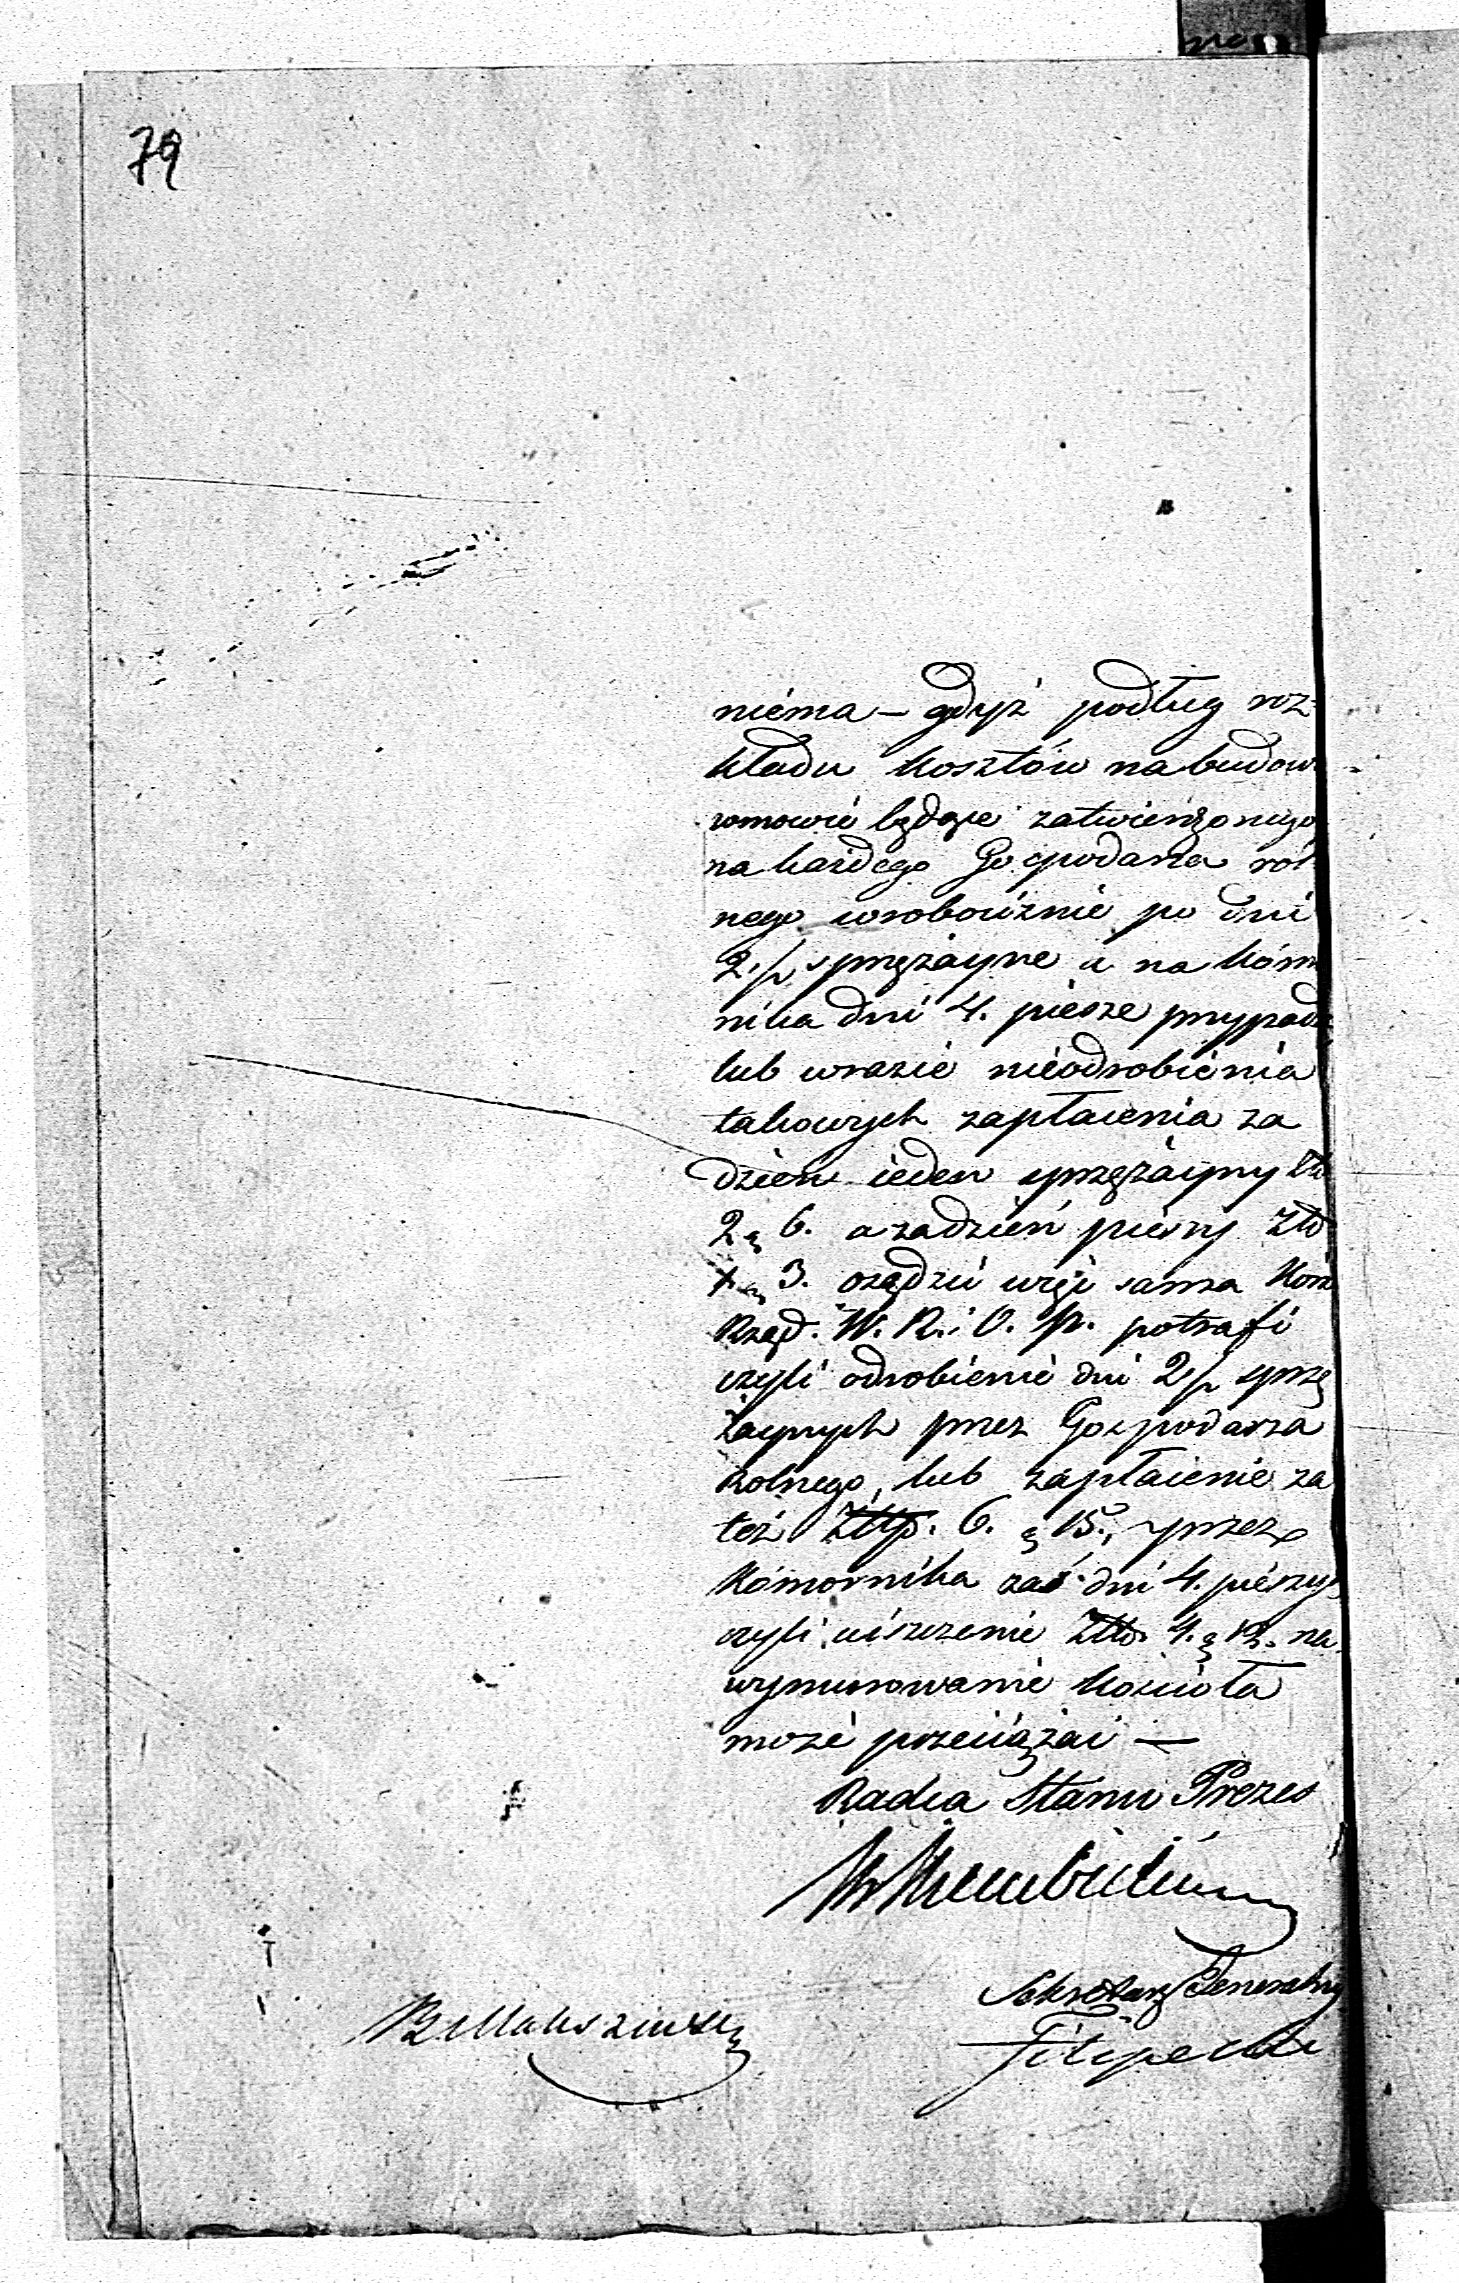 79
niéma – gdyż podług roz-
kładu kosztów na budow
wmowie będące zatwierdzonego
na każdego Gospodarza rol
nego wrobociznie po dni
2 1/2 sprzężayne a na komor
nika dni 4. piesze przypada
lub wrazie nieodrobienia
takowych zapłacenia za
dzień ieden sprzężayny Zł
2 g 6. a zadzień pieszy Złt
1 g 3. osądzić więc sama Kom
Rząd. W. R. i O. P. potrafi
czyli odrobienie dni 2 1/2 sprzę
żaynych przez Gospodarza
Rolnego, lub zapłacenie za
też Złtp. 6. g 15., przez
Komornika zaś dni 4. pieszych
czyli uiszczenie Złtp. 4. g 12. na
wymurowanie kościoła
może przeciążać —
Radca Stanu Prezes
Sekretarz Generalny
Filipecki